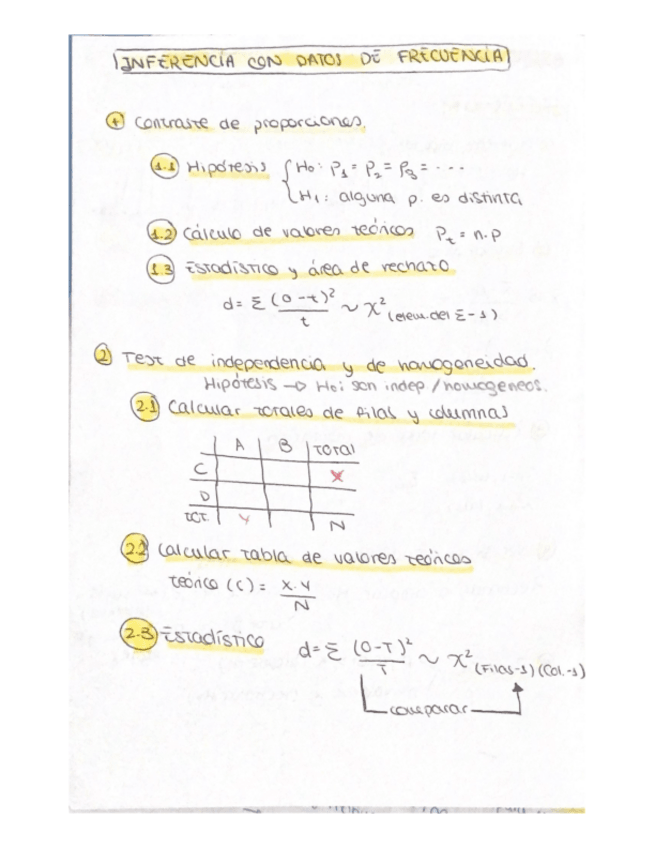 INFERENCIA CON DATOS DE FRECUENCIA
1 Contraste de proporciones.
1.1 Hipótesis { H0: P1 = P2 = P3 = ...
H1: alguna p. es distinta
1.2 Cálculo de valores teóricos Pt = n.p
1.3 Estadístico y área de rechazo
d = Σ (O-t)² / t ~ χ² (elem. del Σ-1)
2 Test de independencia y de homogeneidad.
Hipótesis → H0: son indep / homogéneos.
2.1 Calcular totales de filas y columnas
A B Total
C X
D
TOT. Y N
2.2 Calcular tabla de valores teóricos
teórico (C) = X.Y / N
2.3 Estadístico d = Σ (O-T)² / T ~ χ² (Filas-1)(Col.-1)
comparar